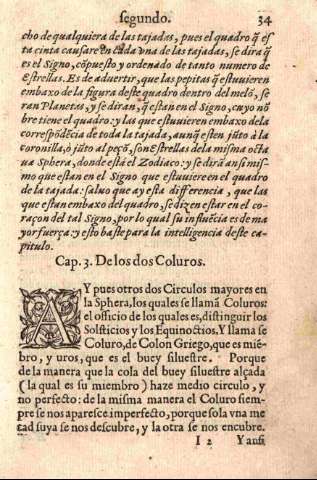 segundo. 34
cho de qualquiera de las tajadas, pues el quadro q̃ es
ta cinta causare en cada vna de las tajadas, se dira q̃
es el Signo, cõpuesto y ordenado de tanto numero de
estrellas. Es de aduertir, que las pepitas q̃ estuuieren
embaxo de la figura deste quadro dentro del melõ, se
ran Planetas, y se diran, q̃ estan en el Signo, cuyo nõ
bre tiene el quadro: y las que estuuieren embaxo de la
correspõdẽcia de toda la tajada, aunq̃ estẽn jũto à la
coronilla, ò jũto al peçõ, sonẽ strellas dela misma octa
ua Sphera, donde está el Zodiaco: y se dirã an si mis-
mo que estan en el Signo que estuuieren el quadro
de la tajada: saluo que ay esta differencia, que las
que estan embaxo del quadro, se dizen estar en el co-
raçon del tal Signo, por lo qual su influẽcia es de ma
yor fuerça: y esto baste para la intelligencia deste ca
pitulo.
Cap. 3. De los dos Coluros.
AY pues otros dos Circulos mayores en
la Sphera, los quales se llamã Coluros:
el officio de los quales es, distinguir los
Solsticios y los Equinoctios, Y llama se
Coluro, de Colon Griego, que es miẽ-
bro, y uros, que es el buey siluestre. Porque
de la manera que la cola del buey siluestre alçada
(la qual es su miembro) haze medio circulo, y
no perfecto: de la misma manera el Coluro siem-
pre se nos aparesce imperfecto, porque sola vna me
tad suya se nos descubre, y la otra se nos encubre.
I 2 Y ansi